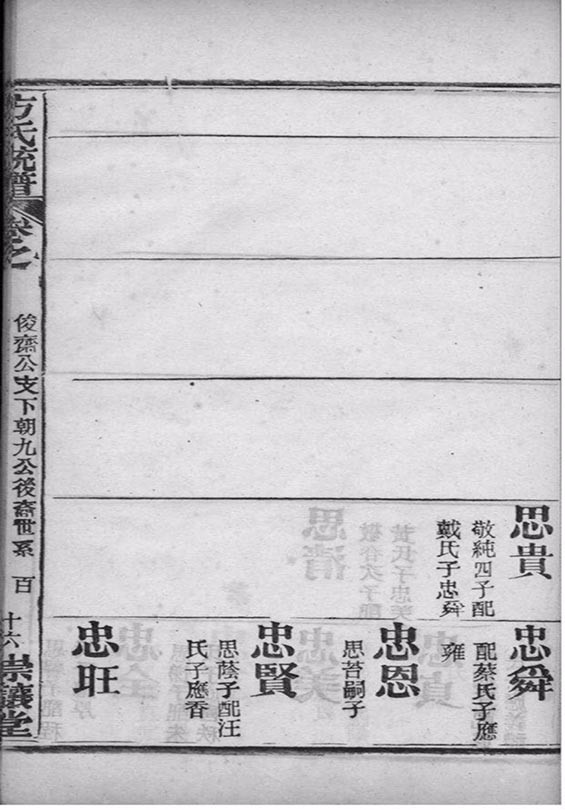 思貴
敬純四子配
戴氏子忠舜
忠舜
配蔡氏子應
雍
忠恩
思苔嗣子
忠賢
思蔭子配汪
氏子應香
忠旺
方氏統譜
卷之
俊齋公支下朝九公後裔世系 百
十六 崇讓堂